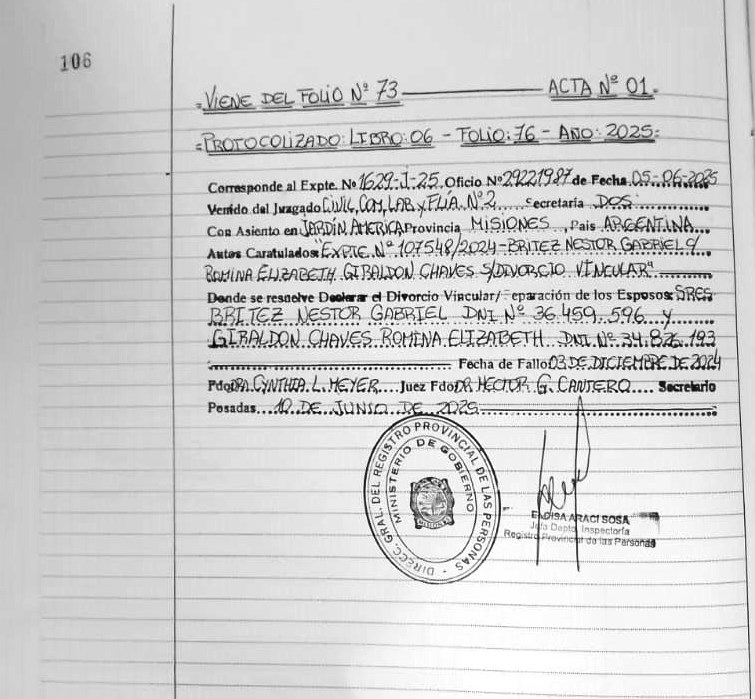 106
=VIENE DEL FOLIO Nº 73 ACTA Nº 01.
=PROTOCOLIZADO: LIBRO: 06 - FOLIO: 76 - AÑO: 2025=
Corresponde al Expte. Nº 1629-J-25. Oficio Nº 29221987 de Fecha 05-06-2025
Venido del Juzgado CIVIL, COM, LAB y FLIA. Nº 2 Secretaría DOS=
Con Asiento en JARDÍN AMERICA Provincia MISIONES, País ARGENTINA
Autos Caratulados: "EXPTE. Nº 107548/2024-BRITEZ NESTOR GABRIEL C/
ROMINA ELIZABETH GIRALDON CHAVES S/DIVORCIO VINCULAR"
Donde se resuelve Declarar el Divorcio Vincular/Separación de los Esposos: SRES
BRITEZ NESTOR GABRIEL DNI Nº 36.459.596 y
GIRALDON CHAVES ROMINA ELIZABETH DNI Nº 34.826.193
Fecha de Fallo 03 DE DICIEMBRE DE 2024
Fdo DRA. CYNTHIA L. MEYER.... Juez Fdo DR HECTOR G. CANTERO.... Secretario
Posadas...10 DE JUNIO DE 2025
DIRECC. GRAL. DEL REGISTRO PROVINCIAL DE LAS PERSONAS -
MINISTERIO DE GOBIERNO
MISIONES
ELOISA ARACI SOSA
Jefa Depto. Inspectoría
Registro Provincial de las Personas